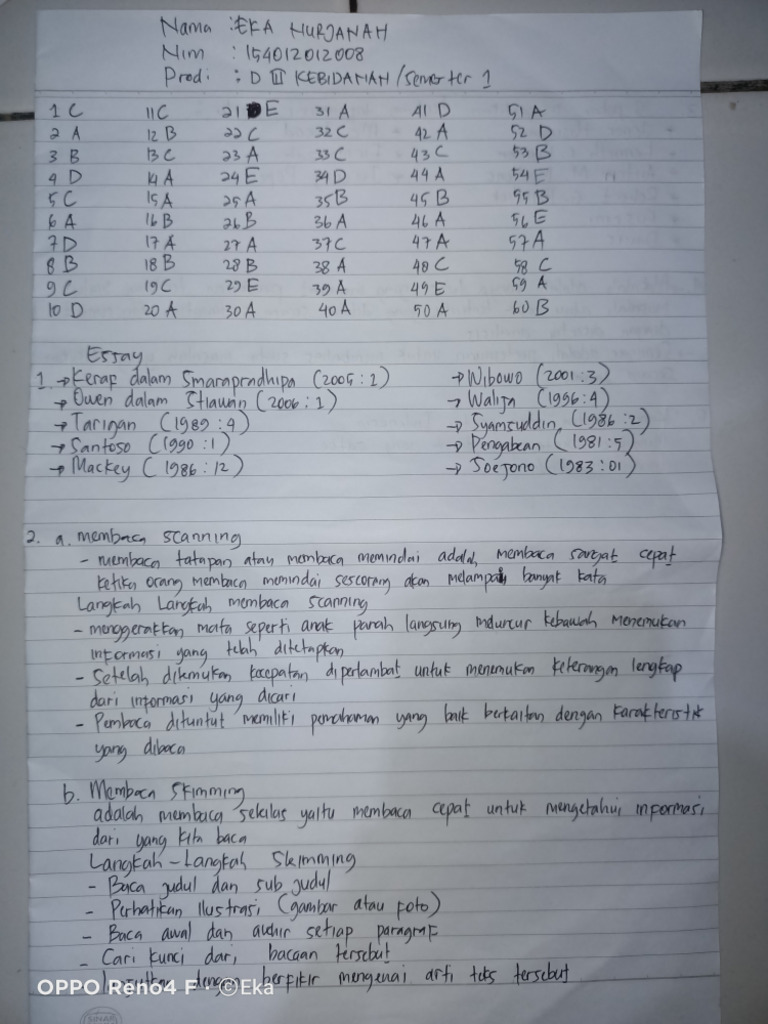 Nama : EKA NURJANAH
Nim : 154012012008
Prodi : D III KEBIDANAN / Semester 1
1 C 11 C 21 E 31 A 41 D 51 A
2 A 12 B 22 C 32 C 42 A 52 D
3 B 13 C 23 A 33 C 43 C 53 B
4 D 14 A 24 E 34 D 44 A 54 E
5 C 15 A 25 A 35 B 45 B 55 B
6 A 16 B 26 B 36 A 46 A 56 E
7 D 17 A 27 A 37 C 47 A 57 A
8 B 18 B 28 B 38 A 48 C 58 C
9 C 19 C 29 E 39 A 49 E 59 A
10 D 20 A 30 A 40 A 50 A 60 B
Essay
1. → Kerap dalam Smarapradhipa (2005 : 1) → Wibowo (2001 : 3)
→ Owen dalam Stiawan (2006 : 1) → Walija (1996 : 4)
→ Tarigan (1989 : 4) → Syamsuddin (1986 : 2)
→ Santoso (1990 : 1) → Pengabean (1981 : 5)
→ Mackey (1986 : 12) → Soejono (1983 : 01)
2. a. membaca scanning
- membaca tatapan atau membaca memindai adalah membaca sangat cepat
ketika orang membaca memindai seseorang akan melampaui banyak kata
Langkah Langkah membaca scanning
- menggerakkan mata seperti anak panah langsung meluncur kebawah menemukan
informasi yang telah ditetapkan
- Setelah ditemukan kecepatan diperlambat untuk menemukan keterangan lengkap
dari informasi yang dicari
- Pembaca dituntut memiliki pemahaman yang baik berkaitan dengan karakteristik
yang dibaca
b. Membaca Skimming
adalah membaca sekilas yaitu membaca cepat untuk mengetahui informasi
dari yang kita baca
Langkah - Langkah Skimming
- Baca judul dan sub judul
- Perhatikan ilustrasi (gambar atau foto)
- Baca awal dan akhir setiap paragraf
- Cari kunci dari bacaan tersebut
dengan berfikir mengenai arti teks tersebut
OPPO Reno4 F · © Eka
SINAR